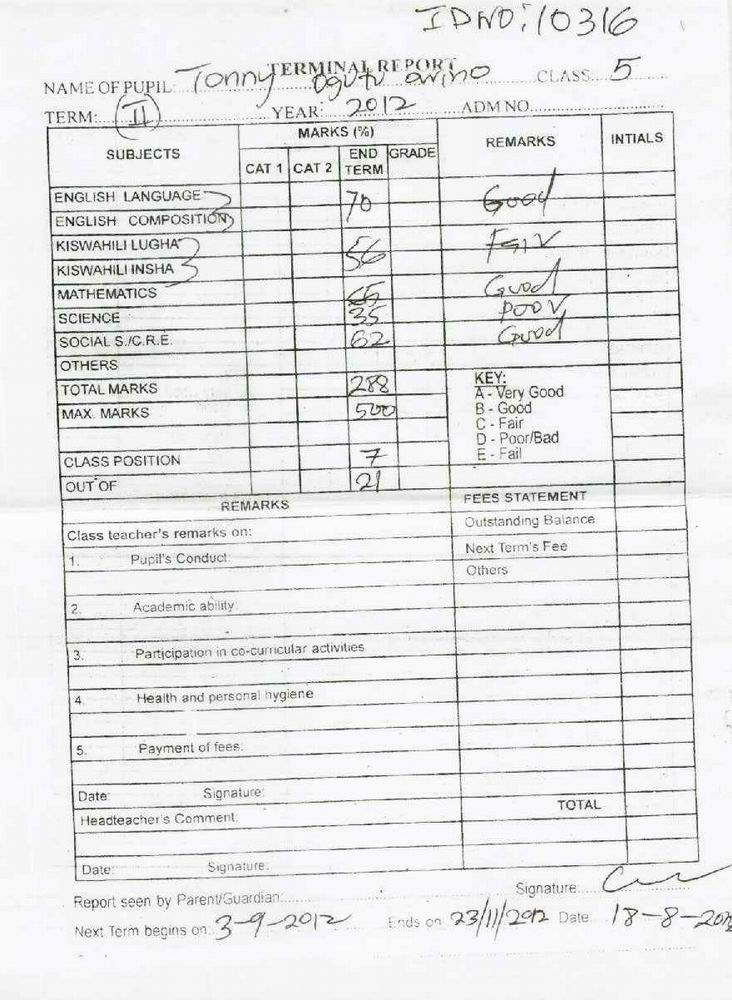 ID NO: 10316
TERMINAL REPORT
NAME OF PUPIL: Tonny Ogutu CLASS: 5
TERM: II YEAR: 2012 ADM NO.
SUBJECTS MARKS (%) REMARKS INTIALS
CAT 1 CAT 2 END TERM GRADE
ENGLISH LANGUAGE
ENGLISH COMPOSITION 70 Good
KISWAHILI LUGHA
KISWAHILI INSHA 56 Fair
MATHEMATICS 65 Good
SCIENCE 35 Poor
SOCIAL S./C.R.E. 62 Good
OTHERS
TOTAL MARKS 288
MAX. MARKS 500
KEY:
A - Very Good
B - Good
C - Fair
D - Poor/Bad
E - Fail
CLASS POSITION 7
OUT OF 21
REMARKS FEES STATEMENT
Class teacher's remarks on: Outstanding Balance
1. Pupil's Conduct: Next Term's Fee
Others
2. Academic ability
3. Participation in co-curricular activities
4. Health and personal hygiene
5. Payment of fees:
Date: Signature:
Headteacher's Comment: TOTAL
Date: Signature:
Report seen by Parent/Guardian: Signature
Next Term begins on: 3-9-2012 Ends on 23/11/2012 Date 18-8-2012